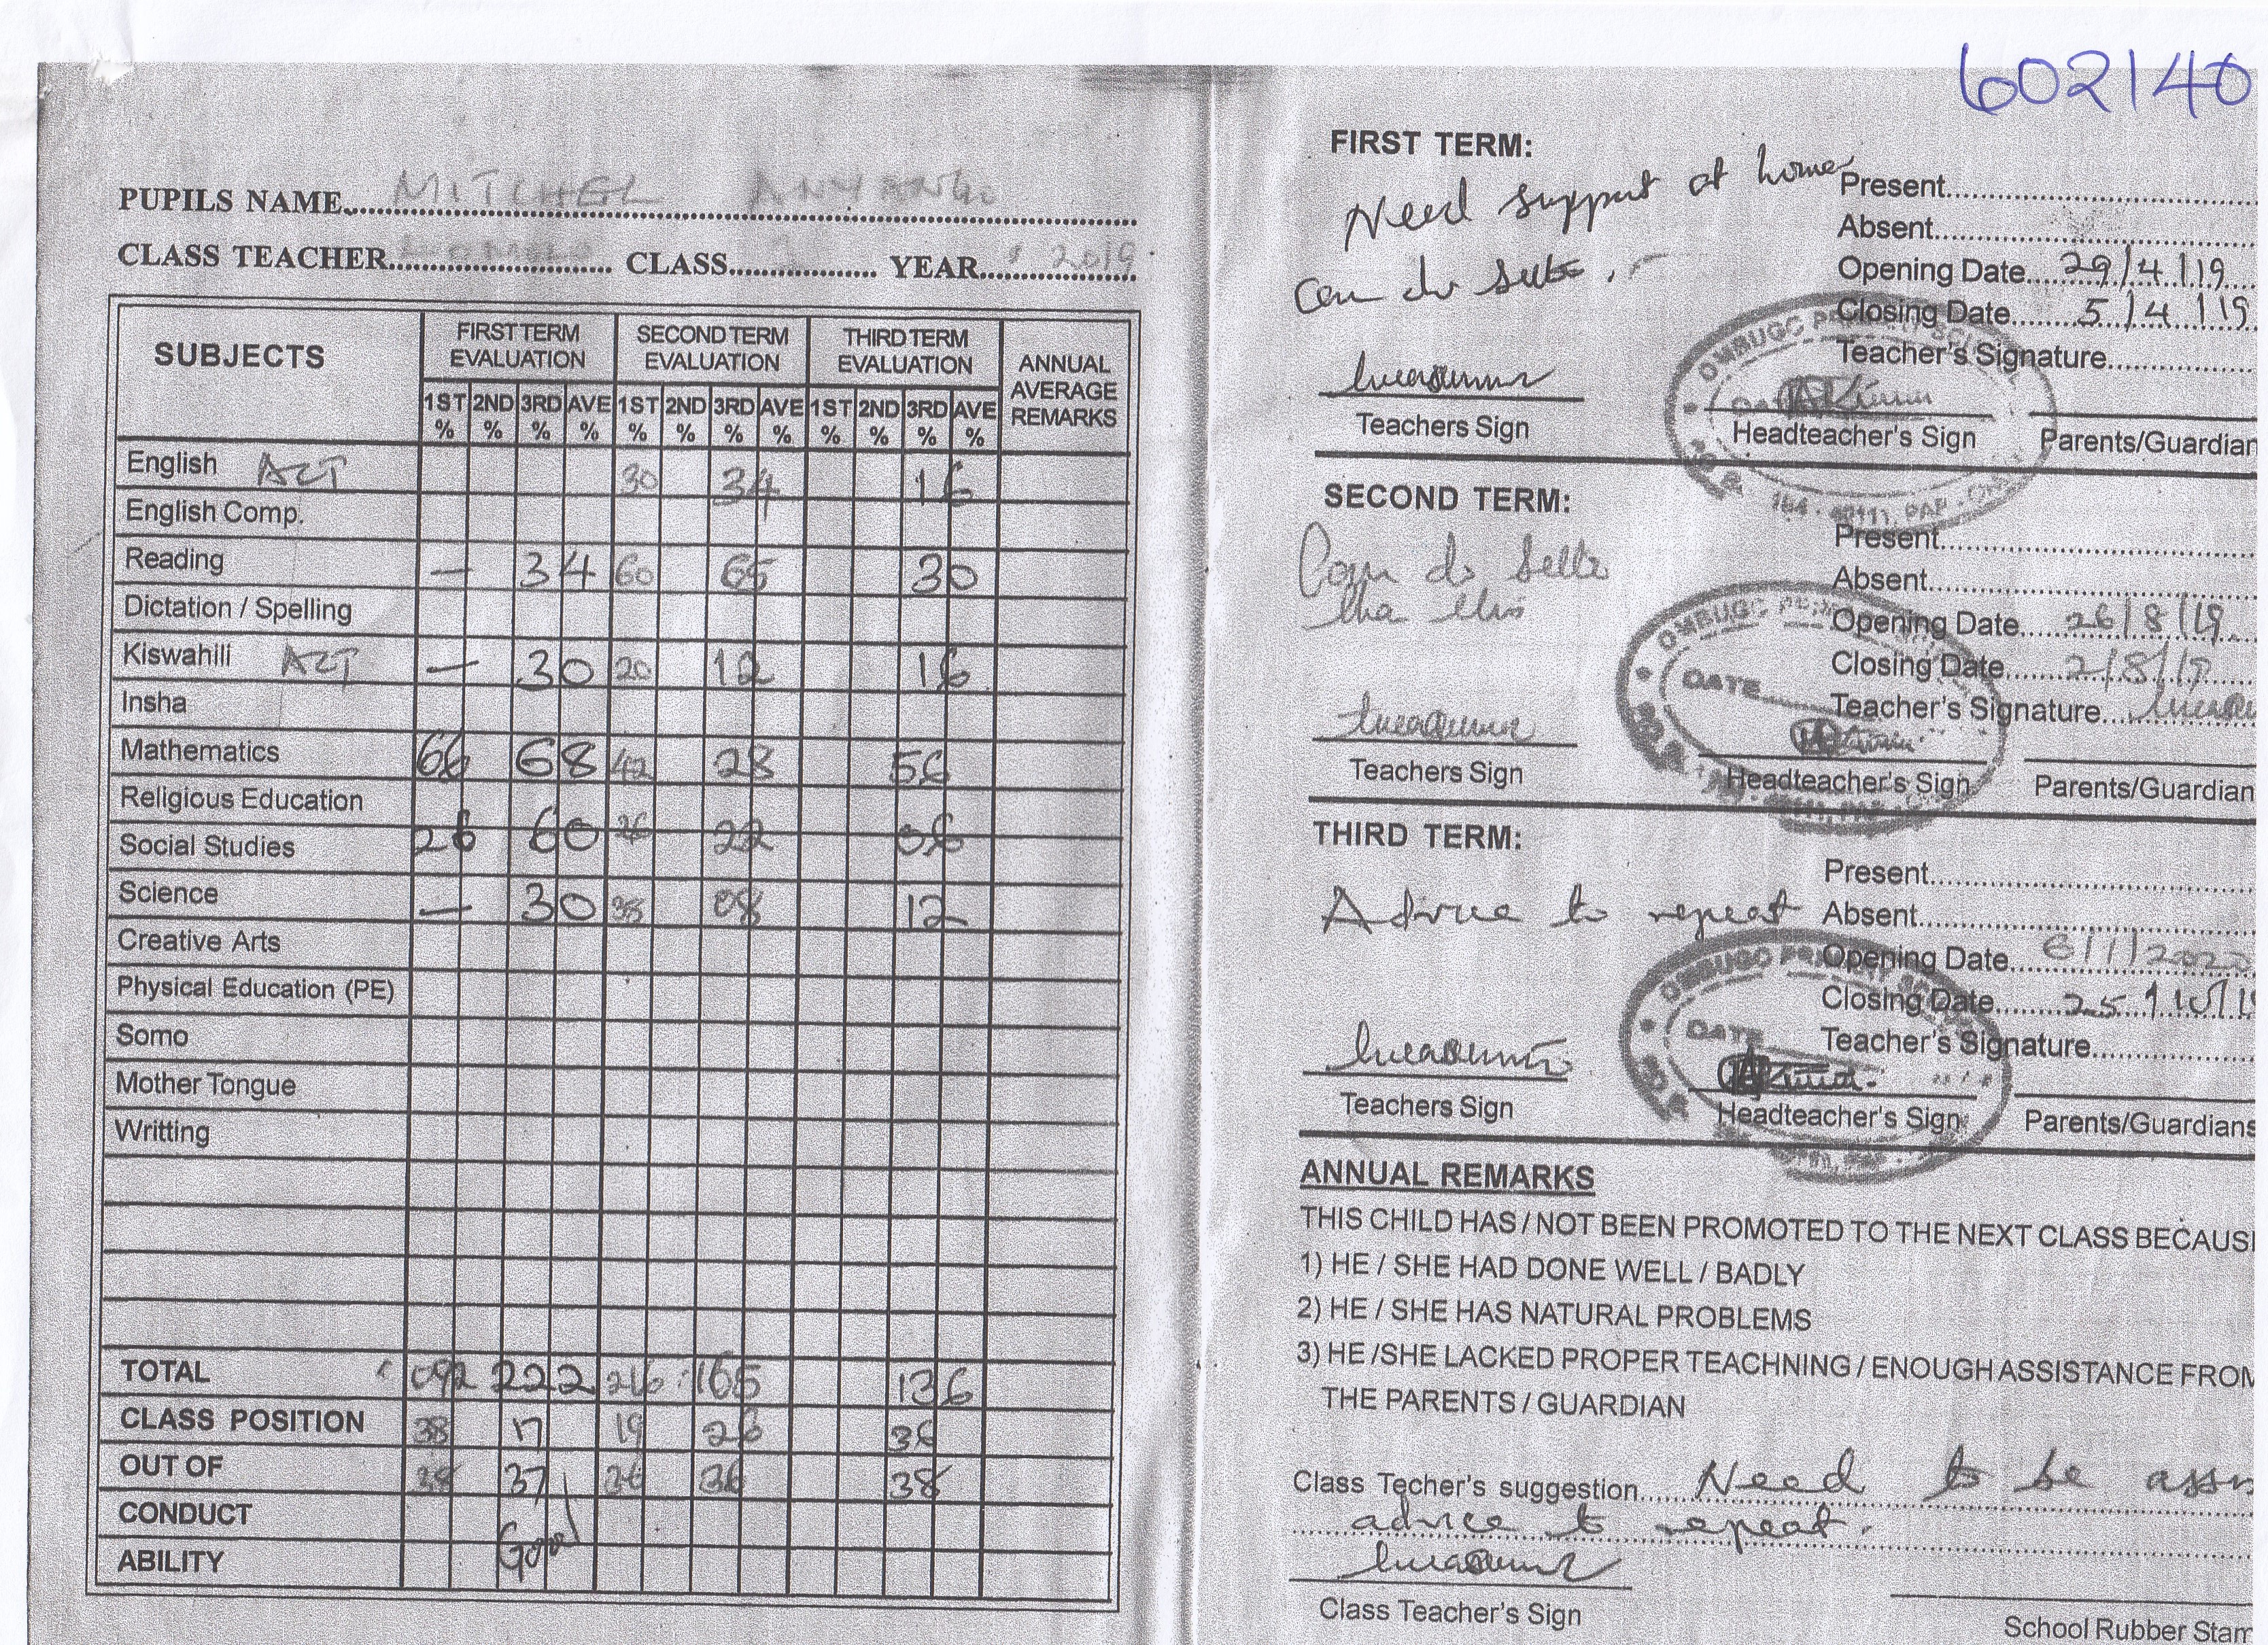 602140
PUPILS NAME MITCHEL ANYANGO
CLASS TEACHER CLASS YEAR 2019
SUBJECTS FIRST TERM EVALUATION SECOND TERM EVALUATION THIRD TERM EVALUATION ANNUAL AVERAGE REMARKS
1ST % 2ND % 3RD % AVE % 1ST % 2ND % 3RD % AVE % 1ST % 2ND % 3RD % AVE %
English 30 34 16
English Comp.
Reading — 34 60 65 30
Dictation / Spelling
Kiswahili — 30 20 12 16
Insha
Mathematics 66 68 42 28 56
Religious Education
Social Studies 26 60 26 22 06
Science — 30 38 08 12
Creative Arts
Physical Education (PE)
Somo
Mother Tongue
Writting
TOTAL 092 222 216 165 136
CLASS POSITION 38 17 19 23 36
OUT OF 38 37 36 36 38
CONDUCT
ABILITY Good
FIRST TERM:
Need support at home
Can do
Present
Absent
Opening Date 29/4/19
Closing Date 5/4/19
Teacher's Signature
Teachers Sign Headteacher's Sign Parents/Guardian
SECOND TERM:
Can do
tha this
Present
Absent
Opening Date 26/8/19
Closing Date 2/8/19
Teacher's Signature
DATE
Teachers Sign Headteacher's Sign Parents/Guardian
THIRD TERM:
Advice to repeat
Present
Absent
Opening Date 6/1/2020
Closing Date 25/10/1
Teacher's Signature
DATE
Teachers Sign Headteacher's Sign Parents/Guardians
ANNUAL REMARKS
THIS CHILD HAS / NOT BEEN PROMOTED TO THE NEXT CLASS BECAUS
1) HE / SHE HAD DONE WELL / BADLY
2) HE / SHE HAS NATURAL PROBLEMS
3) HE /SHE LACKED PROPER TEACHNING / ENOUGH ASSISTANCE FROM
THE PARENTS / GUARDIAN
Class Techer's suggestion Need to be
advice to repeat.
Class Teacher's Sign
School Rubber Stam